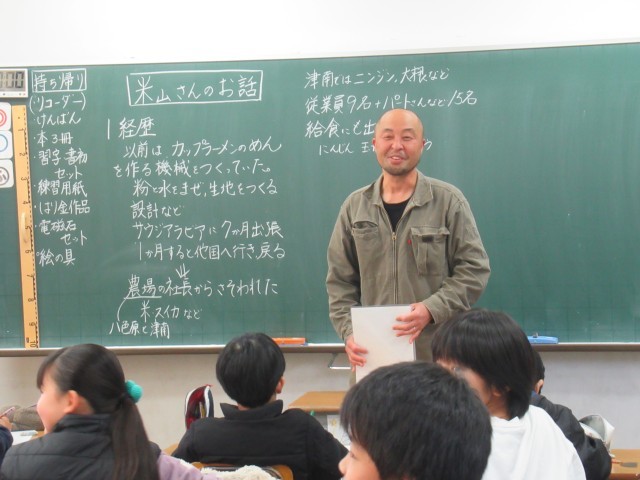 00
持ち帰り
(リコーダー)
けんばん
・本3冊
・習字・書初
セット
・練習用紙
・はり金作品
・電磁石
セット
・絵の具
米山さんのお話
1 経歴
以前は カップラーメンのめん
を作る機械をつくっていた。
粉と水をまぜ、生地をつくる
設計など
サウジアラビアに7ヶ月出張
1ヶ月すると他国へ行き、戻る
農場の社長からさそわれた
米・スイカなど
八色原と津南
津南ではニンジン、大根など
従業員9名+パートさんなど15名
給食にも出
にんじん